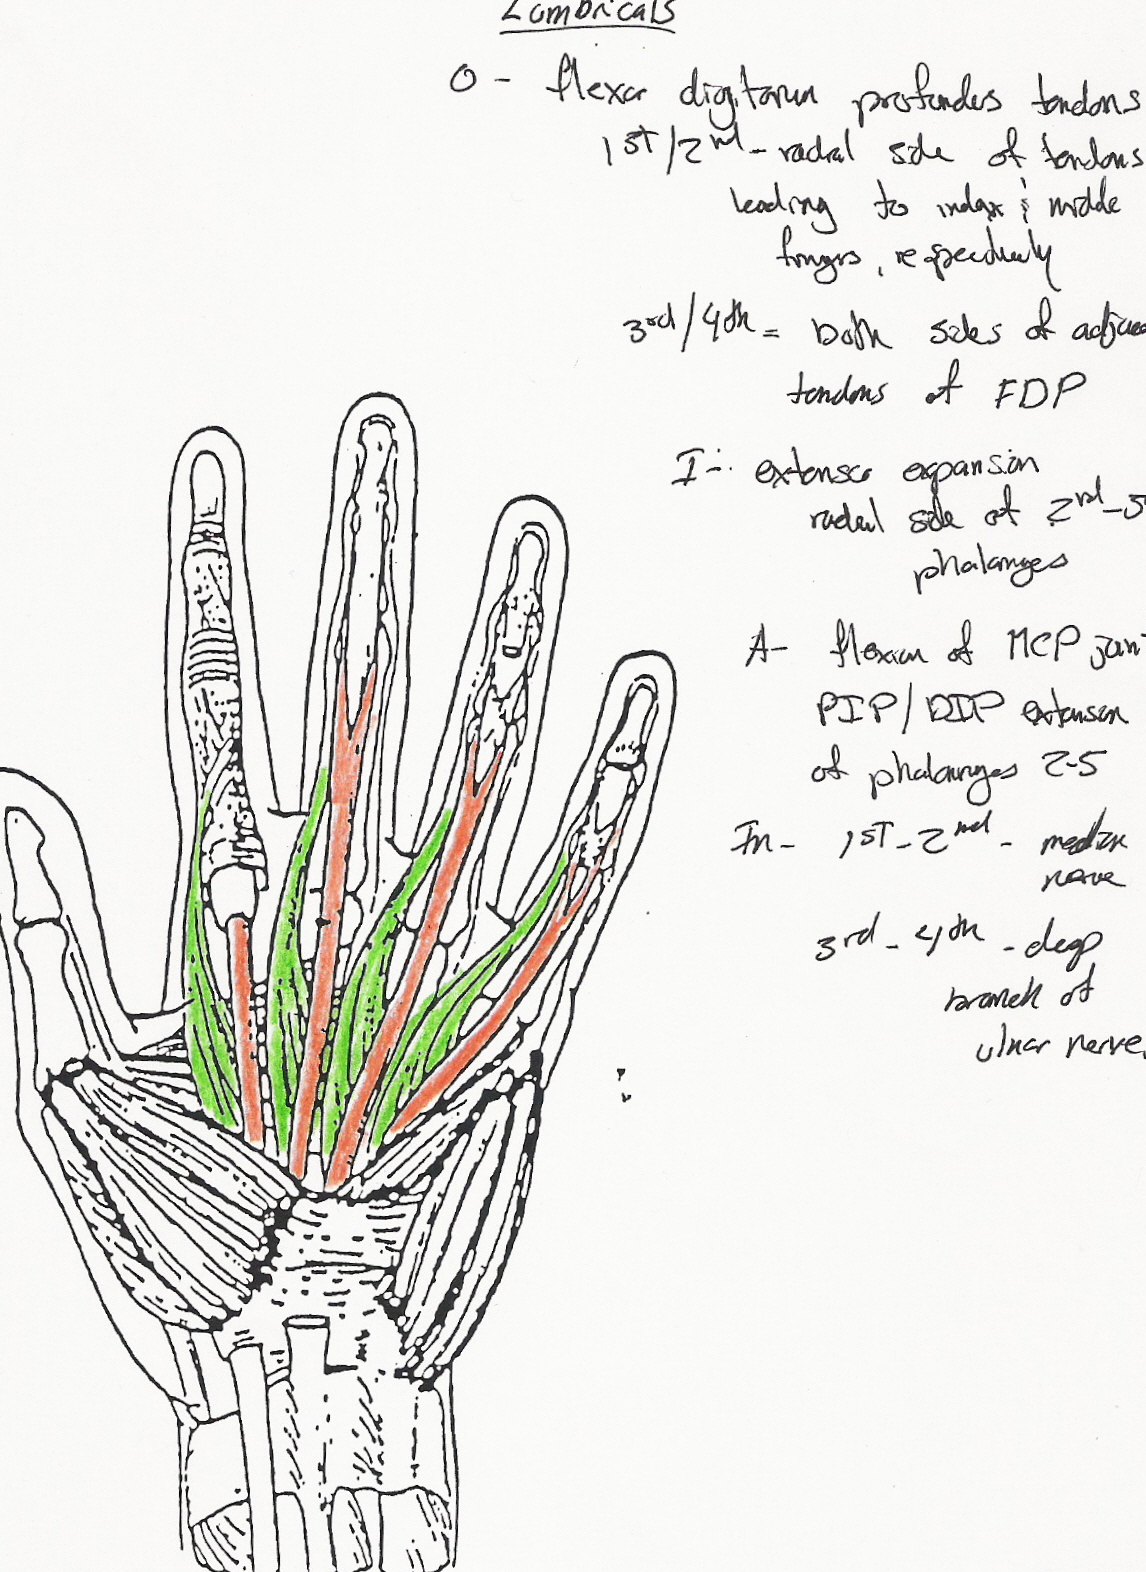 Lumbricals
O - flexor digitorum profundus tendons
1st/2nd - radial side of tendons
leading to index & middle
fingers, respectively
3rd/4th = both sides of
tendons of FDP
I - extensor expansion
radial side of 2nd-5
phalanges
A - flexion of MCP joint
PIP/DIP extension
of phalanges 2-5
In - 1st-2nd - median
nerve
3rd-4th - deep
branch of
ulnar nerve